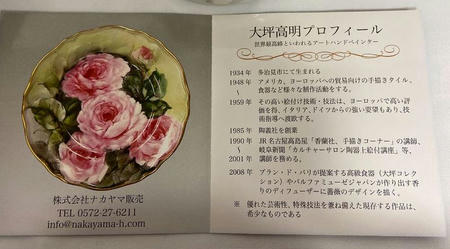 株式会社ナカヤマ販売
TEL 0572-27-6211
info@nakayama-h.com
大坪高明プロフィール
世界最高峰といわれるアートハンドペインター
1934年 多治見市にて生まれる
1948年 アメリカ、ヨーロッパへの貿易向けの手描きタイル、
食器など様々な制作活動をする。
1959年 その高い絵付け技術・技法は、ヨーロッパで高い評
価を得、イタリア、ドイツからの強い要望もあり、技
術指導へ渡欧する。
1985年 陶義社を創業
1990年 JR名古屋高島屋「香蘭社、手描きコーナー」の講師、
岐阜新聞「カルチャーサロン陶器上絵付け講座」等、
2001年 講師を務める。
2008年 ブラン・ド・パリが提案する高級食器（大坪コレク
ション）やパルファミューゼジャパンが作り出す香
りのディフューザーに薔薇のデザインを描く。
※ 優れた芸術性、特殊技法を兼ね備えた現存する作品は、
希少なものである